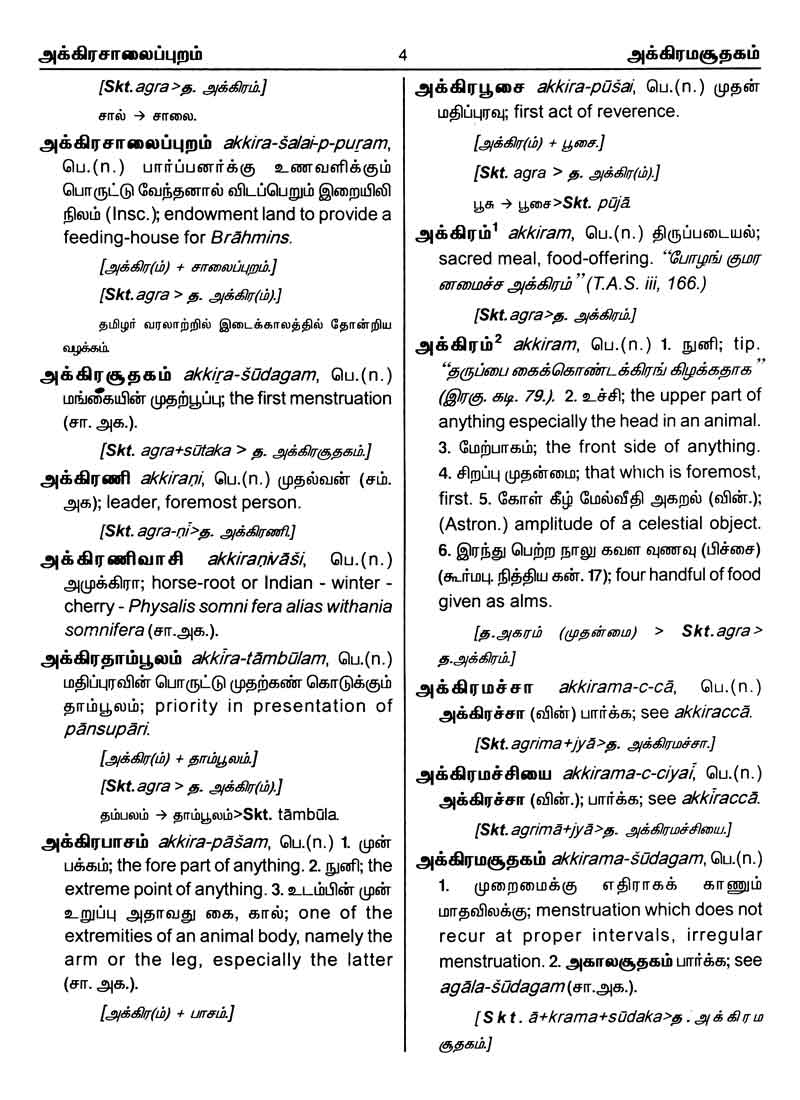 அக்கிரசாலைப்புறம்
4
அக்கிரமசூதகம்
[Skt. agra >த. அக்கிரம்.]
சால் → சாலை.
அக்கிரசாலைப்புறம் akkira-šalai-p-puṟam,
பெ.(n.) பார்ப்பனர்க்கு உணவளிக்கும்
பொருட்டு வேந்தனால் விடப்பெறும் இறையிலி
நிலம் (Insc.); endowment land to provide a
feeding-house for Brāhmins.
[அக்கிர(ம்) + சாலைப்புறம்.]
[Skt. agra > த. அக்கிர(ம்).]
தமிழர் வரலாற்றில் இடைக்காலத்தில் தோன்றிய
வழக்கம்.
அக்கிரசூதகம் akkiṟa-šūdagam, பெ.(n.)
மங்கையின் முதற்பூப்பு; the first menstruation
(சா. அக.).
[Skt. agra+sūtaka > த. அக்கிரசூதகம்.]
அக்கிரணி akkiraṇi, பெ.(n.) முதல்வன் (சம்.
அக); leader, foremost person.
[Skt. agra-ṇī>த. அக்கிரணி.]
அக்கிரணிவாசி akkiraṇivāši, பெ.(n.)
அமுக்கிரா; horse-root or Indian - winter -
cherry - Physalis somni fera alias withania
somnifera (சா.அக.).
அக்கிரதாம்பூலம் akkira-tāmbūlam, பெ.(n.)
மதிப்புரவின் பொருட்டு முதற்கண் கொடுக்கும்
தாம்பூலம்; priority in presentation of
pānsupāri.
[அக்கிர(ம்) + தாம்பூலம்.]
[Skt. agra > த. அக்கிர(ம்).]
தம்பலம் → தாம்பூலம்>Skt. tāmbūla.
அக்கிரபாசம் akkira-pāšam, பெ.(n.) 1. முன்
பக்கம்; the fore part of anything. 2. நுனி; the
extreme point of anything. 3. உடம்பின் முன்
உறுப்பு அதாவது கை, கால்; one of the
extremities of an animal body, namely the
arm or the leg, especially the latter
(சா. அக.).
[அக்கிர(ம்) + பாசம்.]
அக்கிரபூசை akkira-pūšai, பெ.(n.) முதன்
மதிப்புரவு; first act of reverence.
[அக்கிர(ம்) + பூசை.]
[Skt. agra > த. அக்கிர(ம்).]
பூசு → பூசை>Skt. pūjā
அக்கிரம்¹ akkiram, பெ.(n.) திருப்படையல்;
sacred meal, food-offering. “போழங் குமர
னமைச்ச அக்கிரம்” (T.A.S. iii, 166.)
[Skt. agra>த. அக்கிரம்.]
அக்கிரம்² akkiram, பெ.(n.) 1. நுனி; tip.
“தருப்பை கைக்கொண்டக்கிரங் கிழக்கதாக”
(இரகு. கடி. 79.). 2. உச்சி; the upper part of
anything especially the head in an animal.
3. மேற்பாகம்; the front side of anything.
4. சிறப்பு முதன்மை; that which is foremost,
first. 5. கோள் கீழ் மேல்வீதி அகறல் (வின்.);
(Astron.) amplitude of a celestial object.
6. இரந்து பெற்ற நாலு கவள வுணவு (பிச்சை)
(கூர்மபு. நித்திய கன். 17); four handful of food
given as alms.
[த.அகரம் (முதன்மை) > Skt. agra >
த.அக்கிரம்.]
அக்கிரமச்சா akkirama-c-cā, பெ.(n.)
அக்கிரச்சா (வின்) பார்க்க; see akkiraccā.
[Skt. agrima+jyā>த. அக்கிரமச்சா.]
அக்கிரமச்சியை akkirama-c-ciyai, பெ.(n.)
அக்கிரச்சா (வின்.); பார்க்க; see akkiraccā.
[Skt. agrimā+jyā>த. அக்கிரமச்சியை.]
அக்கிரமசூதகம் akkirama-šūdagam, பெ.(n.)
1. முறைமைக்கு எதிராகக் காணும்
மாதவிலக்கு; menstruation which does not
recur at proper intervals, irregular
menstruation. 2. அகாலசூதகம் பார்க்க; see
agāla-šūdagam (சா.அக.).
[Skt. ā+krama+sūdaka>த. அக்கிரம
சூதகம்.]